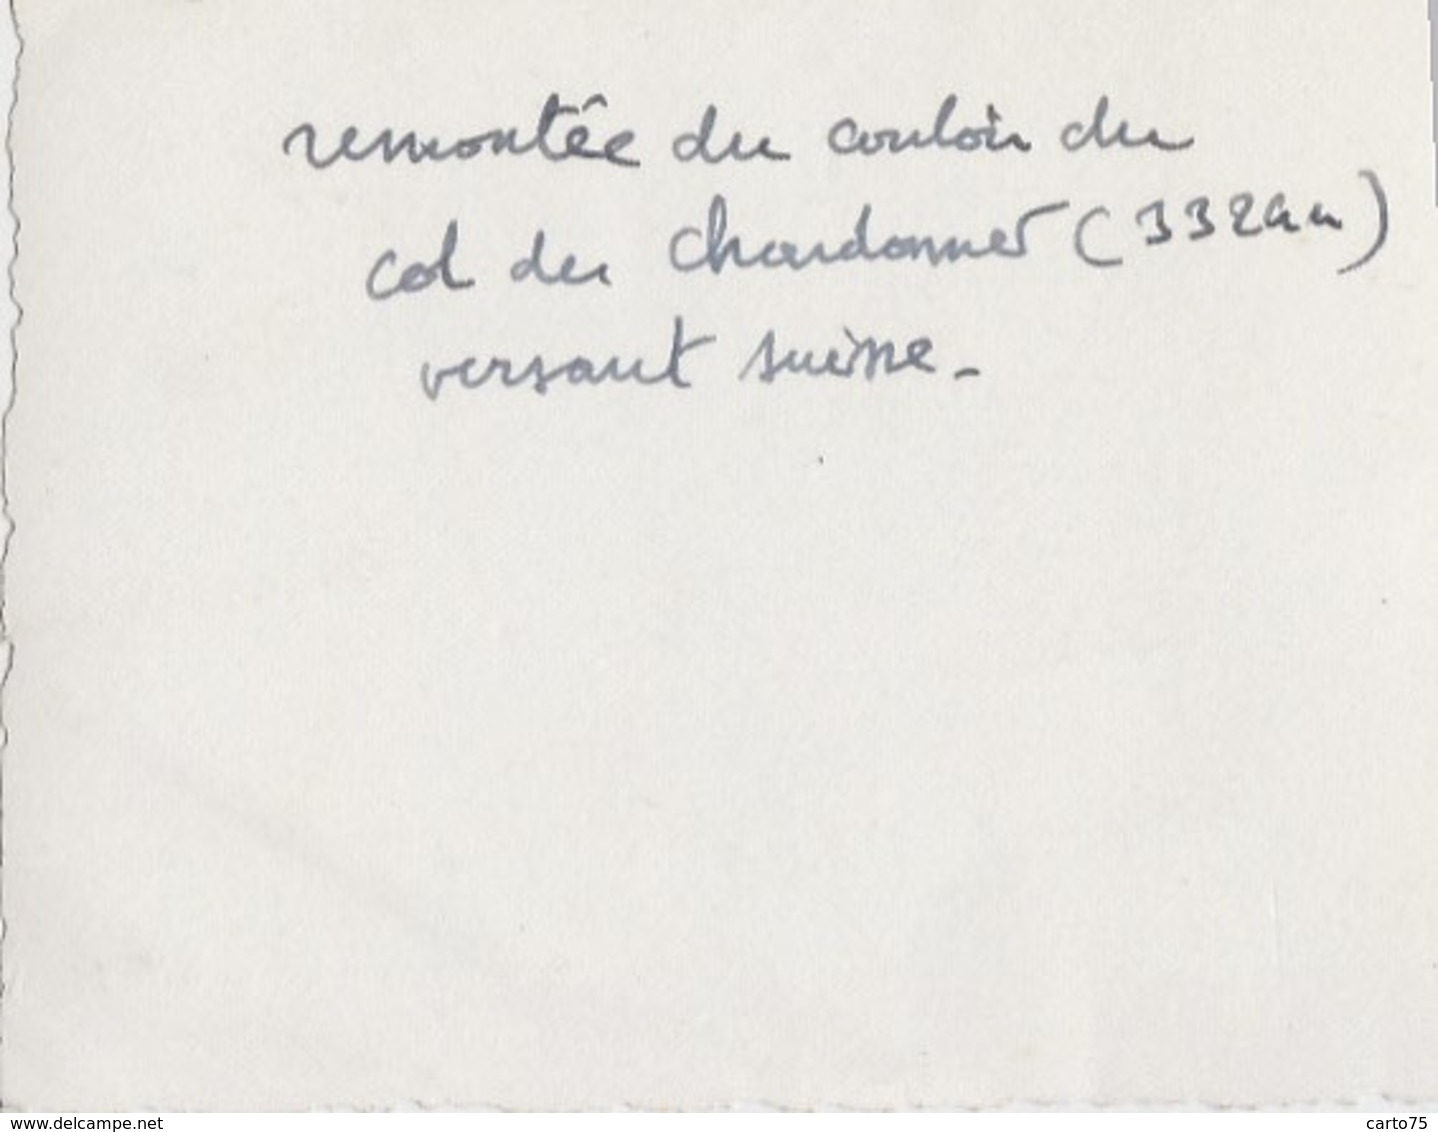 remontée du couloir du
col du Chardonnet (
versant suisse -
www.delcampe.net
carto75